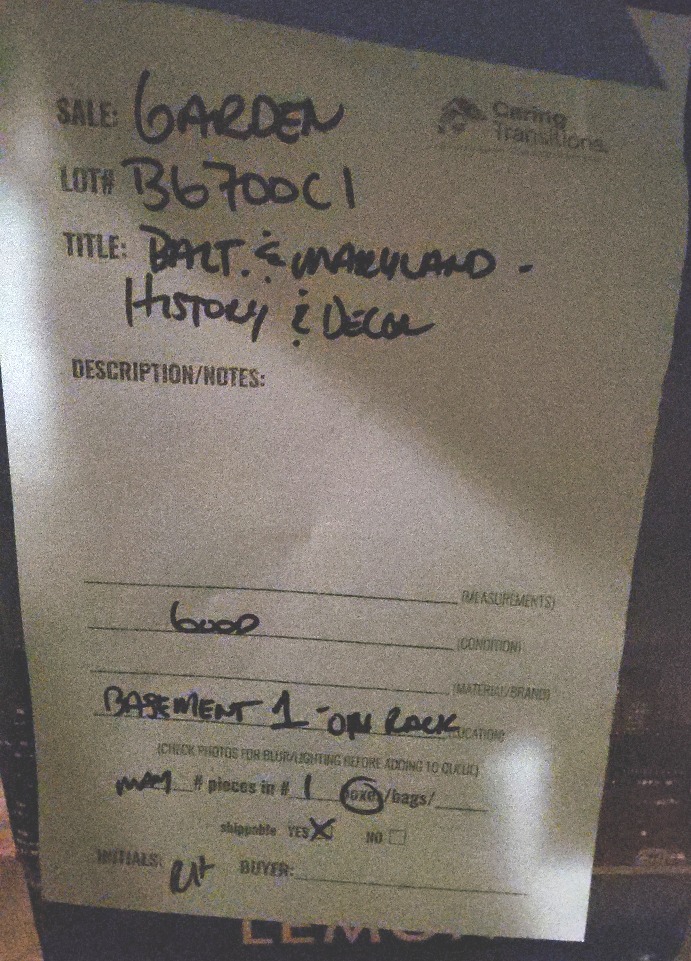 SALE: GARDEN
Caring
Transitions.
LOT# B6700C1
TITLE: BALT. & MARYLAND -
HISTORY & DECOR
DESCRIPTION/NOTES:
(MEASUREMENTS)
GOOD (CONDITION)
(MATERIAL/BRAND)
BASEMENT 1 - ON RACK (LOCATION)
(CHECK PHOTOS FOR BLUR/LIGHTING BEFORE ADDING TO
# pieces in # 1 boxes/bags/
shippable YES X NO
INITIALS: BUYER: